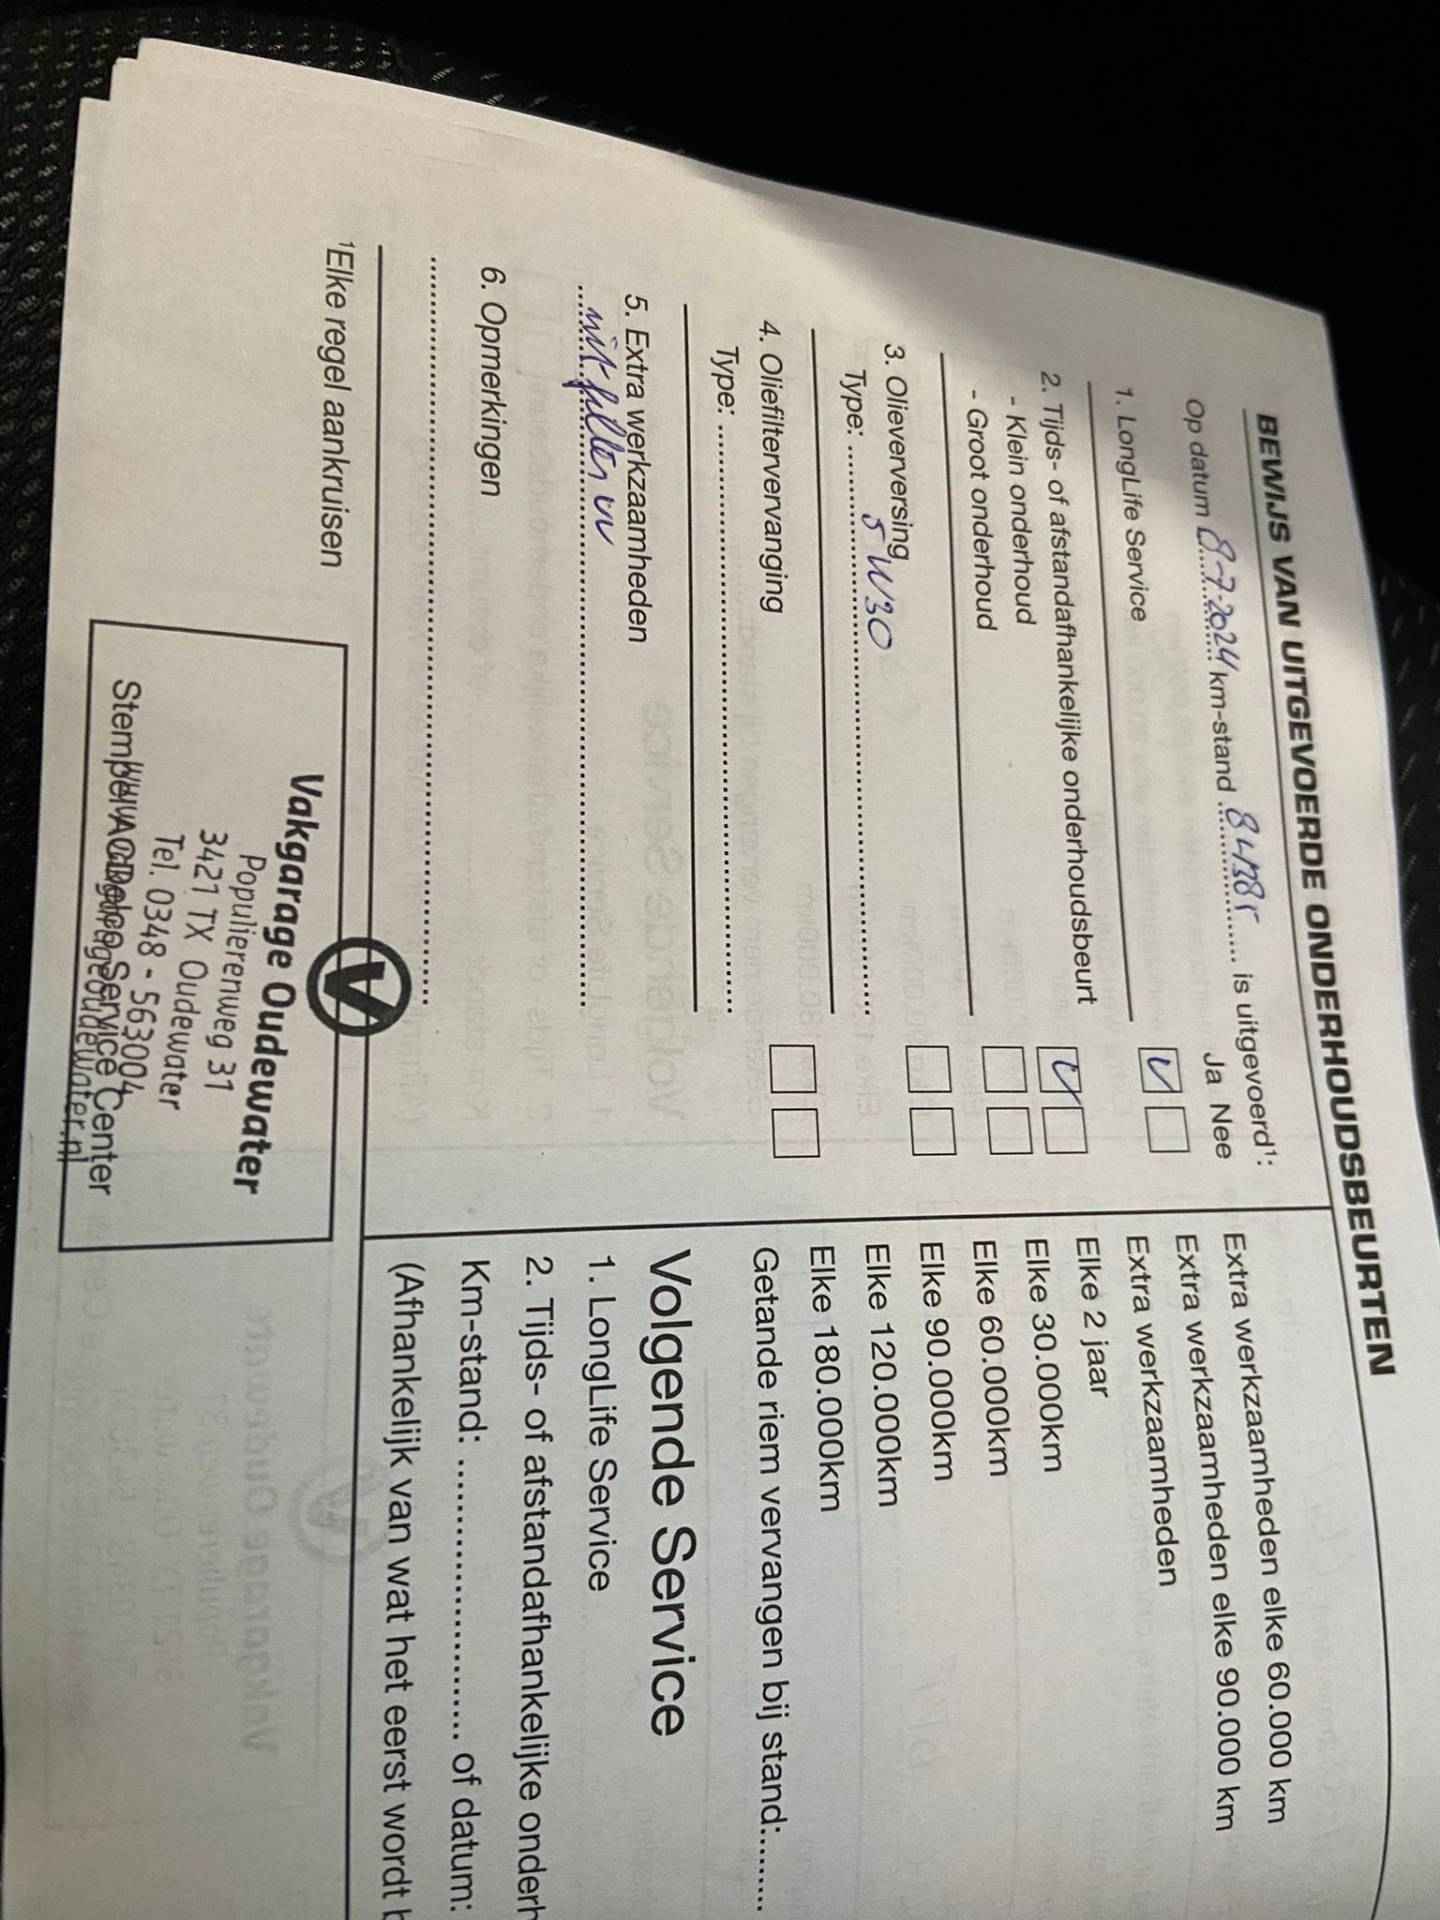 BEWIJS VAN UITGEVOERDE ONDERHOUDSBEURTEN
Op datum 8-7-2024 km-stand is uitgevoerd¹:
Ja Nee
1. LongLife Service
2. Tijds- of afstandafhankelijke onderhoudsbeurt
- Klein onderhoud
- Groot onderhoud
3. Olieverversing
Type: 5W30
4. Oliefiltervervanging
Type:
5. Extra werkzaamheden
filter
6. Opmerkingen
¹Elke regel aankruisen
Vakgarage Oudewater
Populierenweg 31
3421 TX Oudewater
Tel. 0348 - 563004
Stempel ACDelco Service Center
Extra werkzaamheden elke 60.000 km
Extra werkzaamheden elke 90.000 km
Extra werkzaamheden
Elke 2 jaar
Elke 30.000km
Elke 60.000km
Elke 90.000km
Elke 120.000km
Elke 180.000km
Getande riem vervangen bij stand:
Volgende Service
1. LongLife Service
2. Tijds- of afstandafhankelijke onderh
Km-stand: of datum:
(Afhankelijk van wat het eerst wordt b